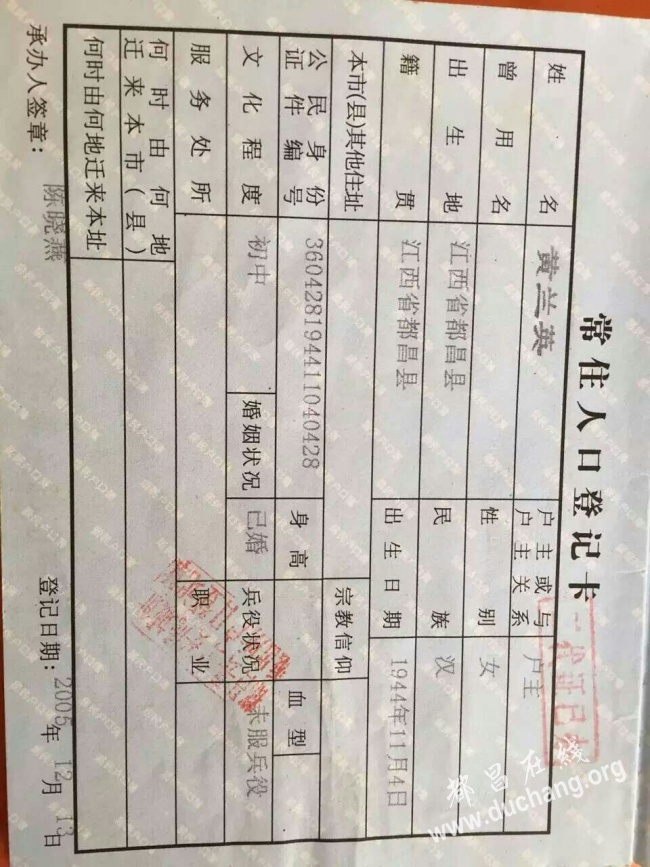 常住人口登记卡
姓名 黄兰英 户主或与户主关系 户主
曾用名 性别 女
出生地 江西省都昌县 民族 汉
籍贯 江西省都昌县 出生日期 1944年11月4日
本市(县)其他住址 宗教信仰
公民身份证件编号 360428194411040428 身高 血型
文化程度 初中 婚姻状况 已婚 兵役状况 未服兵役
服务处所 职业
何时由何地迁来本市(县)
何时由何地迁来本址
承办人签章: 陈晓燕 登记日期: 2005年 12月 13日
都昌在线
www.duchang.org